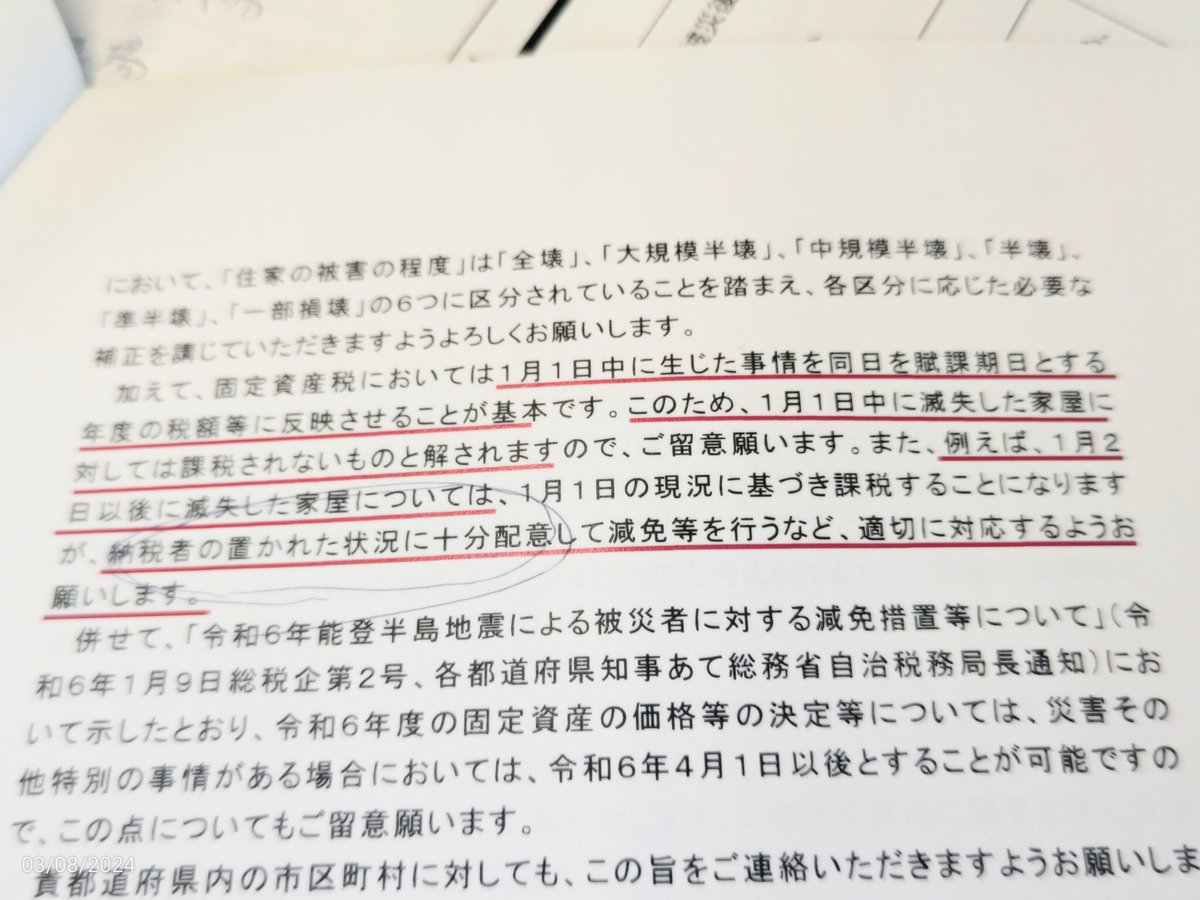 災後
において、「住家の被害の程度」は「全壊」、「大規模半壊」、「中規模半壊」、「半壊」、
「準半壊」、「一部損壊」の6つに区分されていることを踏まえ、各区分に応じた必要な
補正を講じていただきますようよろしくお願いします。
加えて、固定資産税においては1月1日中に生じた事情を同日を賦課期日とする
年度の税額等に反映させることが基本です。このため、1月1日中に滅失した家屋に
対しては課税されないものと解されますので、ご留意願います。また、例えば、1月2
日以後に滅失した家屋については、1月1日の現況に基づき課税することになります
が、納税者の置かれた状況に十分配意して減免等を行うなど、適切に対応するようお
願いします。
併せて、「令和6年能登半島地震による被災者に対する減免措置等について」(令
和6年1月9日総税企第2号、各都道府県知事あて総務省自治税務局長通知)にお
いて示したとおり、令和6年度の固定資産の価格等の決定等については、災害その
他特別の事情がある場合においては、令和6年4月1日以後とすることが可能ですの
で、この点についてもご留意願います。
貴都道府県内の市区町村に対しても、この旨をご連絡いただきますようお願いしま
03/08/2024